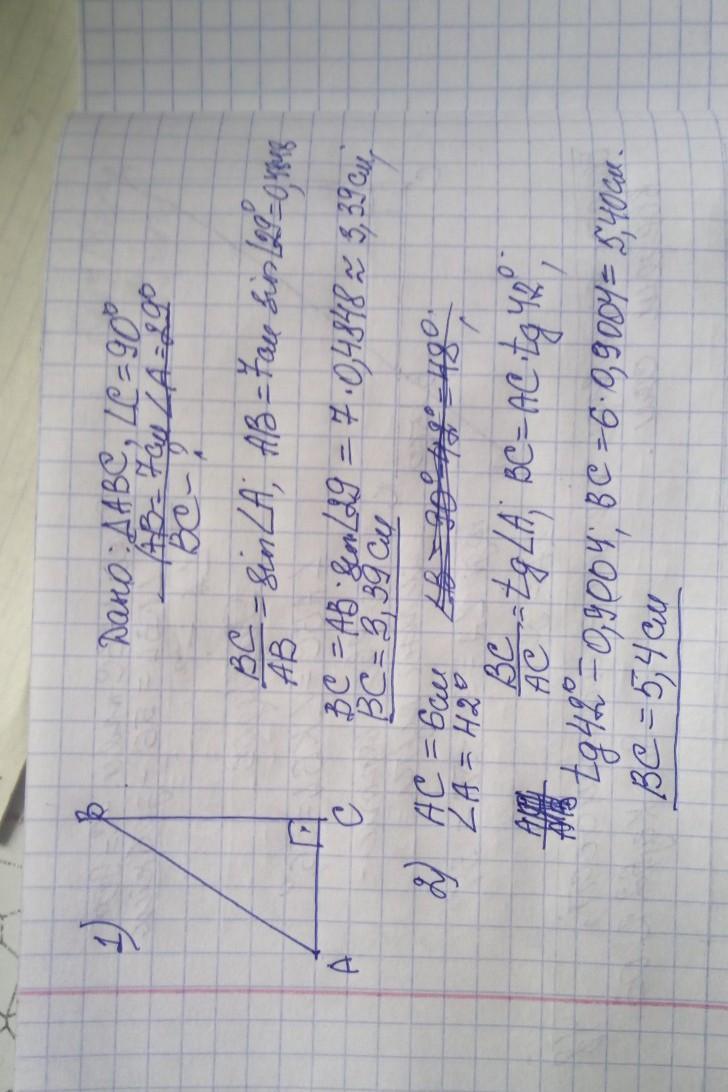 1)
B
A
C
Дано: ΔABC, ∠C = 90°
AB = 7 см ∠A = 29°
BC – ?
BC/AB = sin∠A; AB = 7 см sin∠29° = 0,4848
BC = AB · sin∠29 = 7 · 0,4848 ≈ 3,39 см,
BC = 3,39 см
2) AC = 6 см
∠A = 42°
∠B = 90° - 42° = 48°.
BC/AC = tg∠A; BC = AC · tg 42°;
tg 42° = 0,9004; BC = 6 · 0,9004 = 5,40 см.
BC = 5,4 см